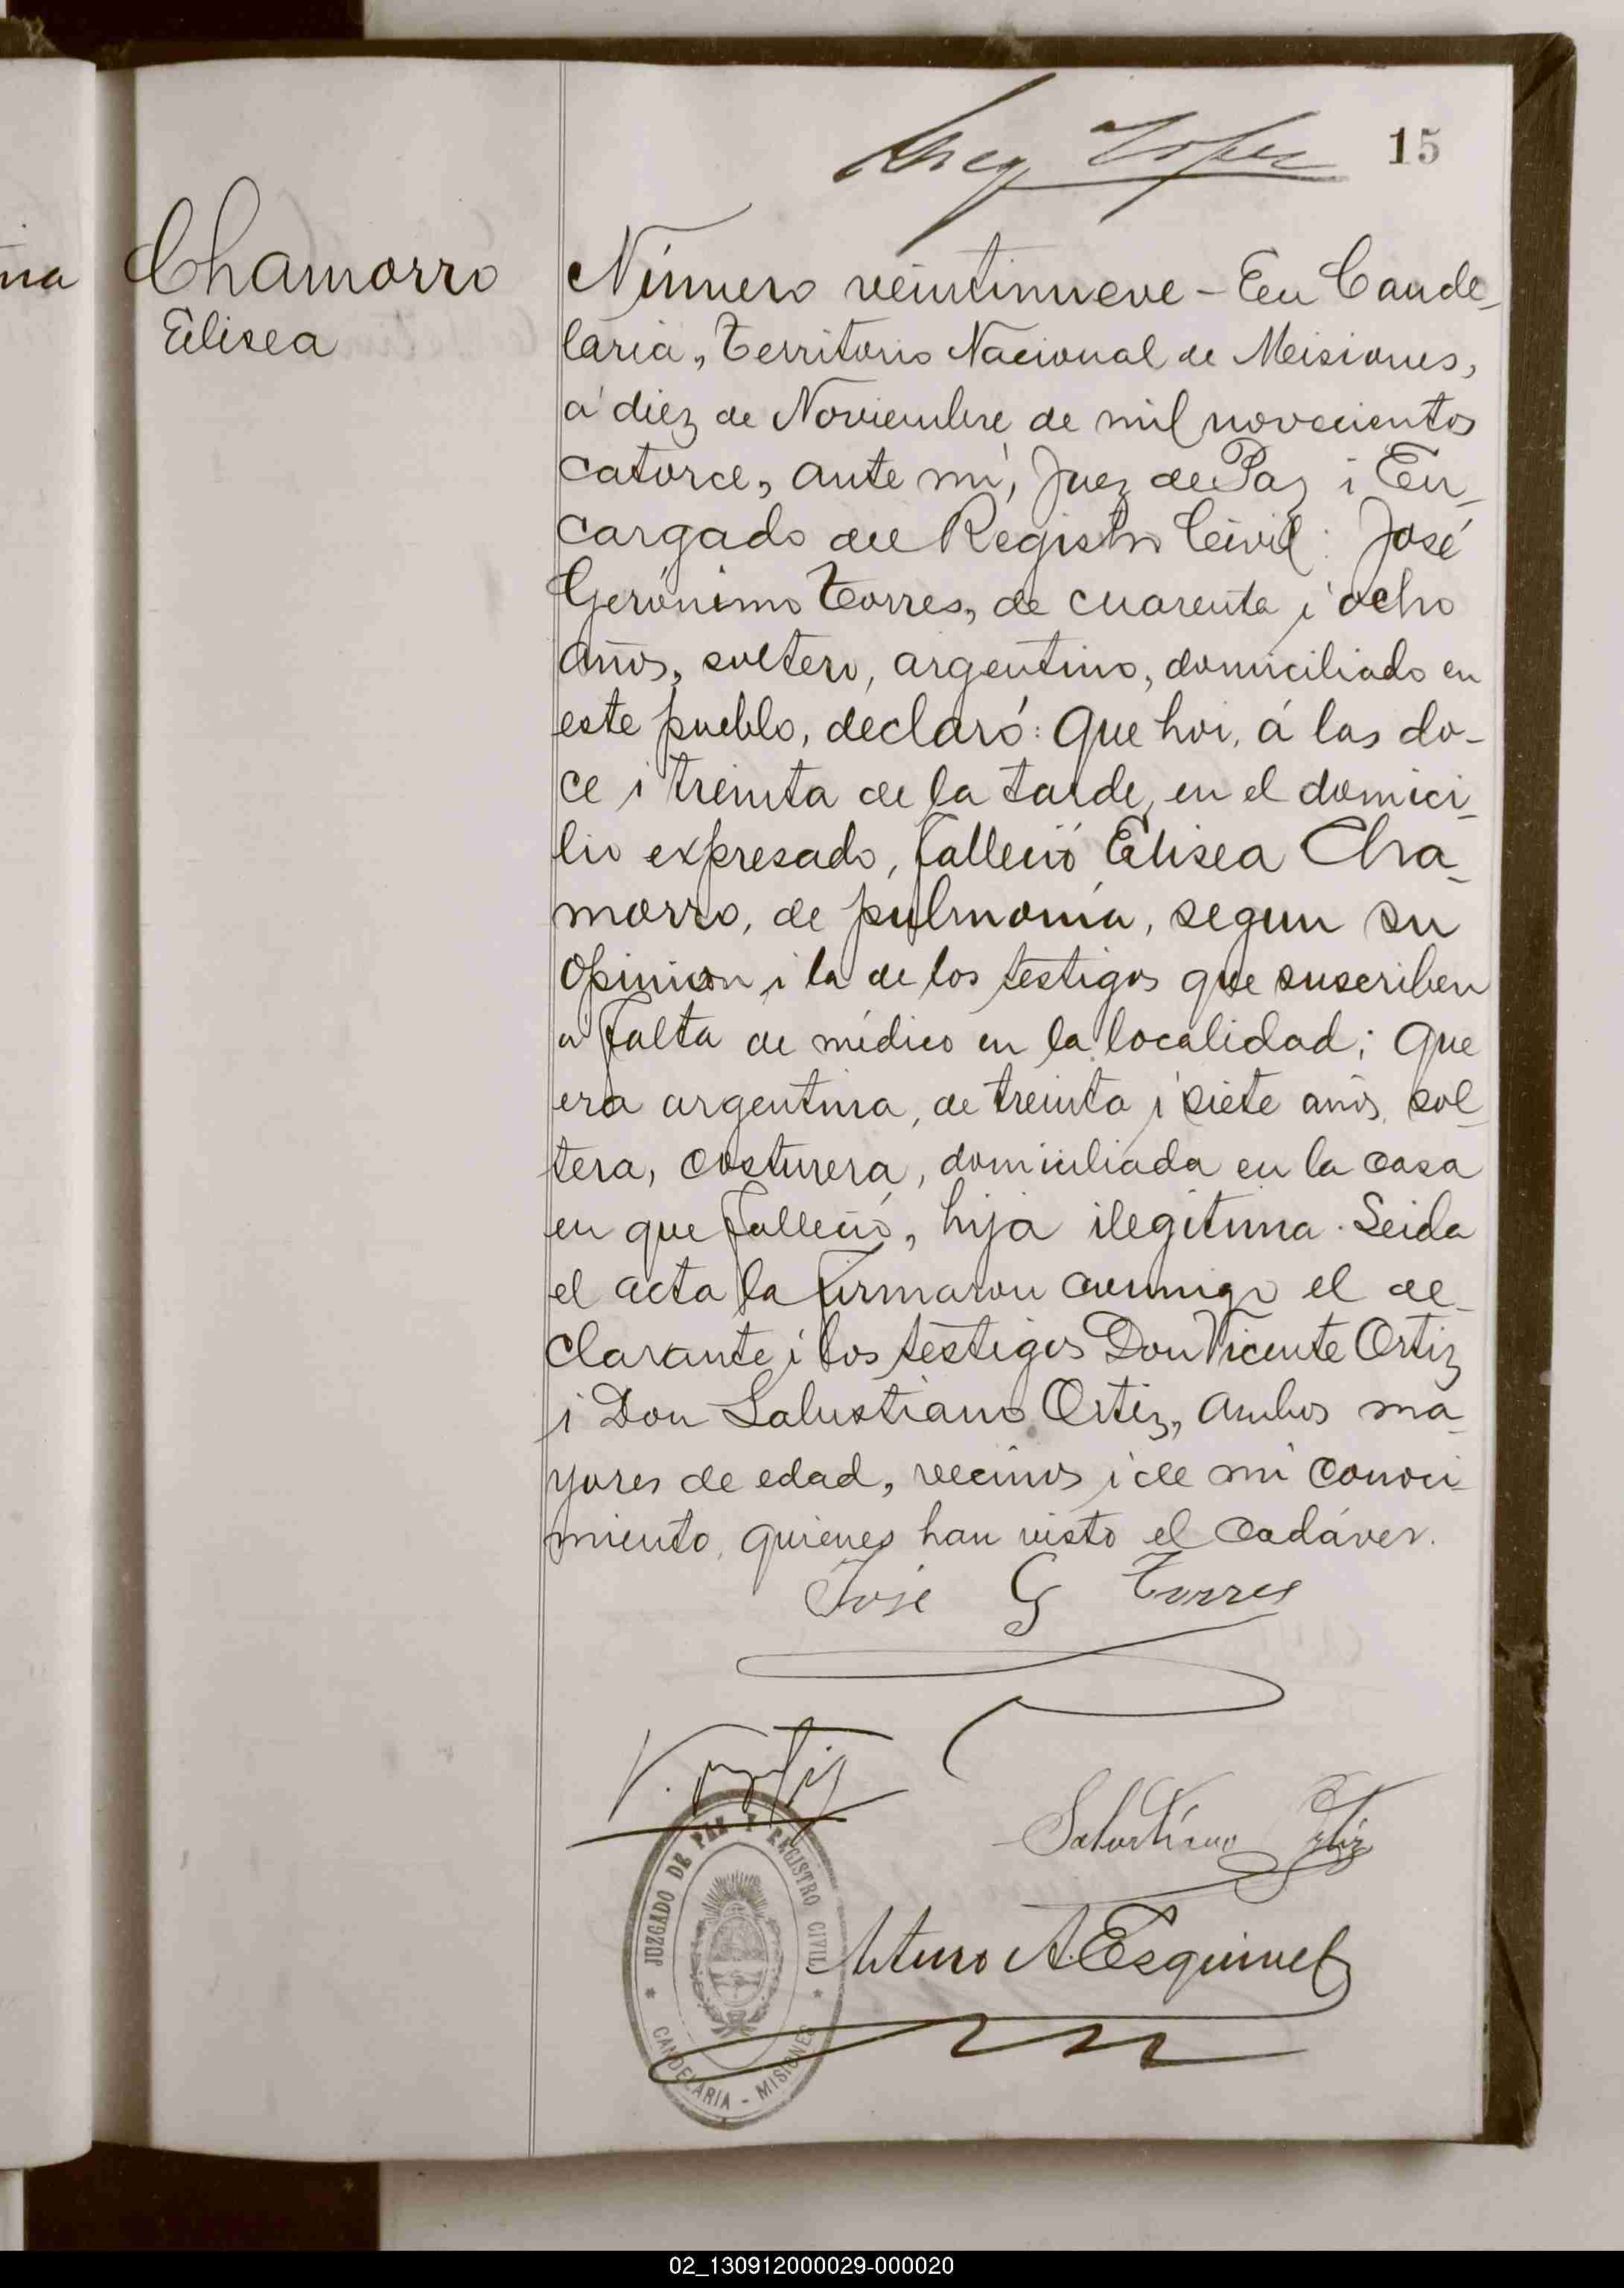 15
na
Chamorro
Elisea
Número veintinueve - En Cande-
laria, Territorio Nacional de Misiones,
á diez de Noviembre de mil novecientos
catorce, ante mí, Juez de Paz i En-
cargado del Registro Civil: José
Gerónimo Torres, de cuarenta i ocho
años, soltero, argentino, domiciliado en
este pueblo, declaró: Que hoi, á las do-
ce i treinta de la tarde, en el domici-
lio expresado, falleció Elisea Cha-
morro, de pulmonía, segun su
opinion i la de los testigos que suscriben
á falta de médico en la localidad; Que
era argentina, de treinta i siete años, sol-
tera, costurera, domiciliada en la casa
en que falleció, hija ilegítima. Leida
el acta la firmaron conmigo el de-
clarante i los testigos Don Vicente Ortiz
i Don Salustiano Ortiz, ambos ma-
yores de edad, vecinos i de mi conoci-
miento, quienes han visto el cadáver.
José G Torres
V. Ortiz
Salustiano Ortiz
Arturo A. Esquivel
JUZGADO DE PAZ Y REGISTRO CIVIL
* CANDELARIA - MISIONES *
02_130912000029-000020